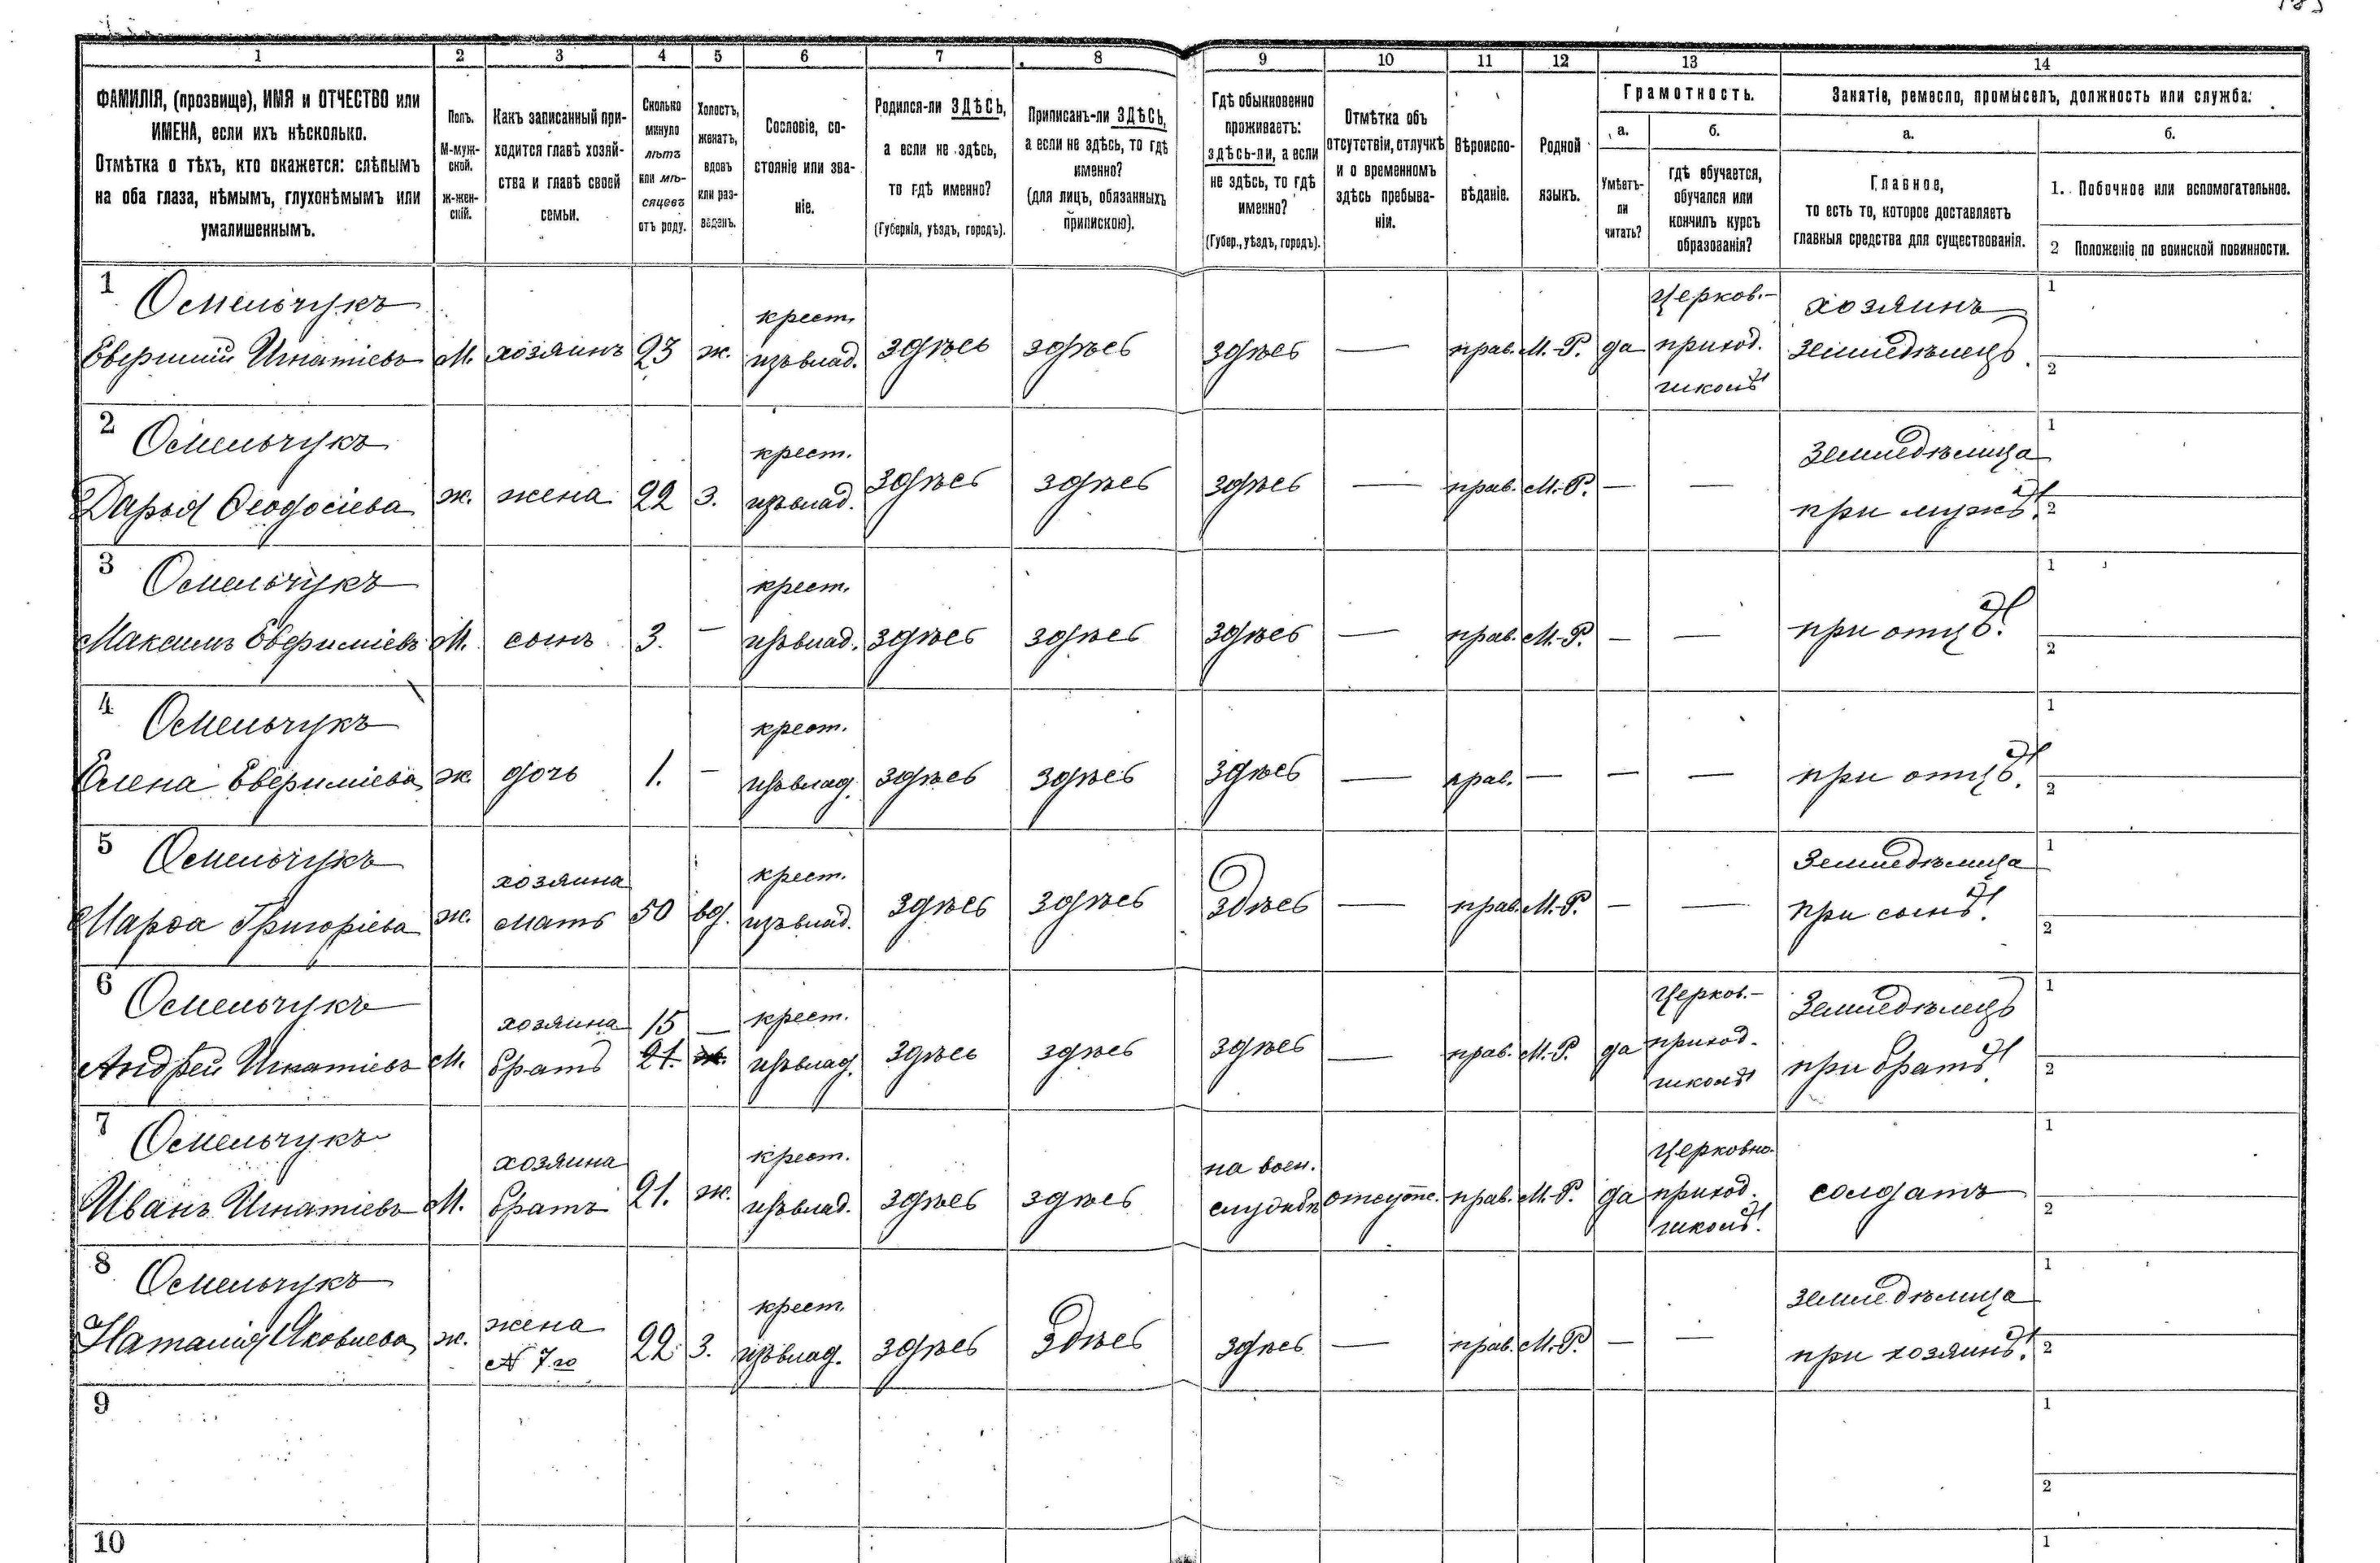 1 2 3 4 5 6 7 8 9 10 11 12 13 14
ФАМИЛІЯ, (прозвище), ИМЯ и ОТЧЕСТВО или
ИМЕНА, если ихъ нѣсколько.
Отмѣтка о тѣхъ, кто окажется: слѣпымъ
на оба глаза, нѣмымъ, глухонѣмымъ или
умалишеннымъ.
Полъ.
М-муж-
ской.
ж-жен-
скій.
Какъ записанный при-
ходится главѣ хозяй-
ства и главѣ своей
семьи.
Сколько
минуло
лѣтъ
или мѣ-
сяцевъ
отъ роду.
Холостъ,
женатъ,
вдовъ
или раз-
веденъ.
Сословіе, со-
стояніе или зва-
ніе.
Родился-ли ЗДѢСЬ,
а если не здѣсь,
то гдѣ именно?
(Губернія, уѣздъ, городъ).
Приписанъ-ли ЗДѢСЬ,
а если не здѣсь, то гдѣ
именно?
(для лицъ, обязанныхъ
припискою).
Гдѣ обыкновенно
проживаетъ:
здѣсь-ли, а если
не здѣсь, то гдѣ
именно?
(Губер., уѣздъ, городъ).
Отмѣтка объ
отсутствіи, отлучкѣ
и о временномъ
здѣсь пребыва-
ніи.
Вѣроиспо-
вѣданіе.
Родной
языкъ.
Грамотность.
а.
Умѣетъ-
ли
читать?
б.
гдѣ обучается,
обучался или
кончилъ курсъ
образованія?
Занятіе, ремесло, промыселъ, должность или служба:
а.
Главное,
то есть то, которое доставляетъ
главныя средства для существованія.
б.
1. Побочное или вспомогательное.
2 Положеніе по воинской повинности.
1 Осмельчукъ крест. Церков.- хозяинъ 1
Евфимій Игнатіевъ М. хозяинъ 23 ж. изъ влад. здѣсь здѣсь здѣсь — прав. М.-Р. да приход. земледѣлецъ. 2
школѣ
2 Осмельчукъ крест. Земледѣлица 1
Дарья Ѳеодосіева ж. жена 22 З. изъ влад. здѣсь здѣсь здѣсь — прав. М.-Р. — — при мужѣ. 2
3 Осмельчукъ крест. 1
Максимъ Евфиміевъ М. сынъ 3. — изъ влад. здѣсь здѣсь здѣсь — прав. М.-Р. — — при отцѣ. 2
4 Осмельчукъ крест. 1
Елена Евфиміева ж дочь 1. — изъ влад. здѣсь здѣсь здѣсь — прав. — — — при отцѣ. 2
5 Осмельчукъ хозяина крест. Земледѣлица 1
Марѳа Григоріева ж. мать 50 вд. изъ влад. здѣсь здѣсь здѣсь — прав. М.-Р. — — при сынѣ. 2
6 Осмельчукъ хозяина 15 — крест. Церков.- Земледѣлецъ 1
Андрей Игнатіевъ М. братъ 21. ж. изъ влад. здѣсь здѣсь здѣсь — прав. М.-Р. да приход. при братѣ. 2
школѣ
7 Осмельчукъ хозяина крест. на воен. Церковно- 1
Иванъ Игнатіевъ М. братъ 21. ж. изъ влад. здѣсь здѣсь службѣ отсутс. прав. М.-Р. да приход. солдатъ 2
школѣ.
8 Осмельчукъ жена крест. земледѣлица 1
Наталія Яковлева ж. № 7го 22 З. изъ влад. здѣсь здѣсь здѣсь — прав. М.-Р. — — при хозяинѣ. 2
9 1
2
10 1